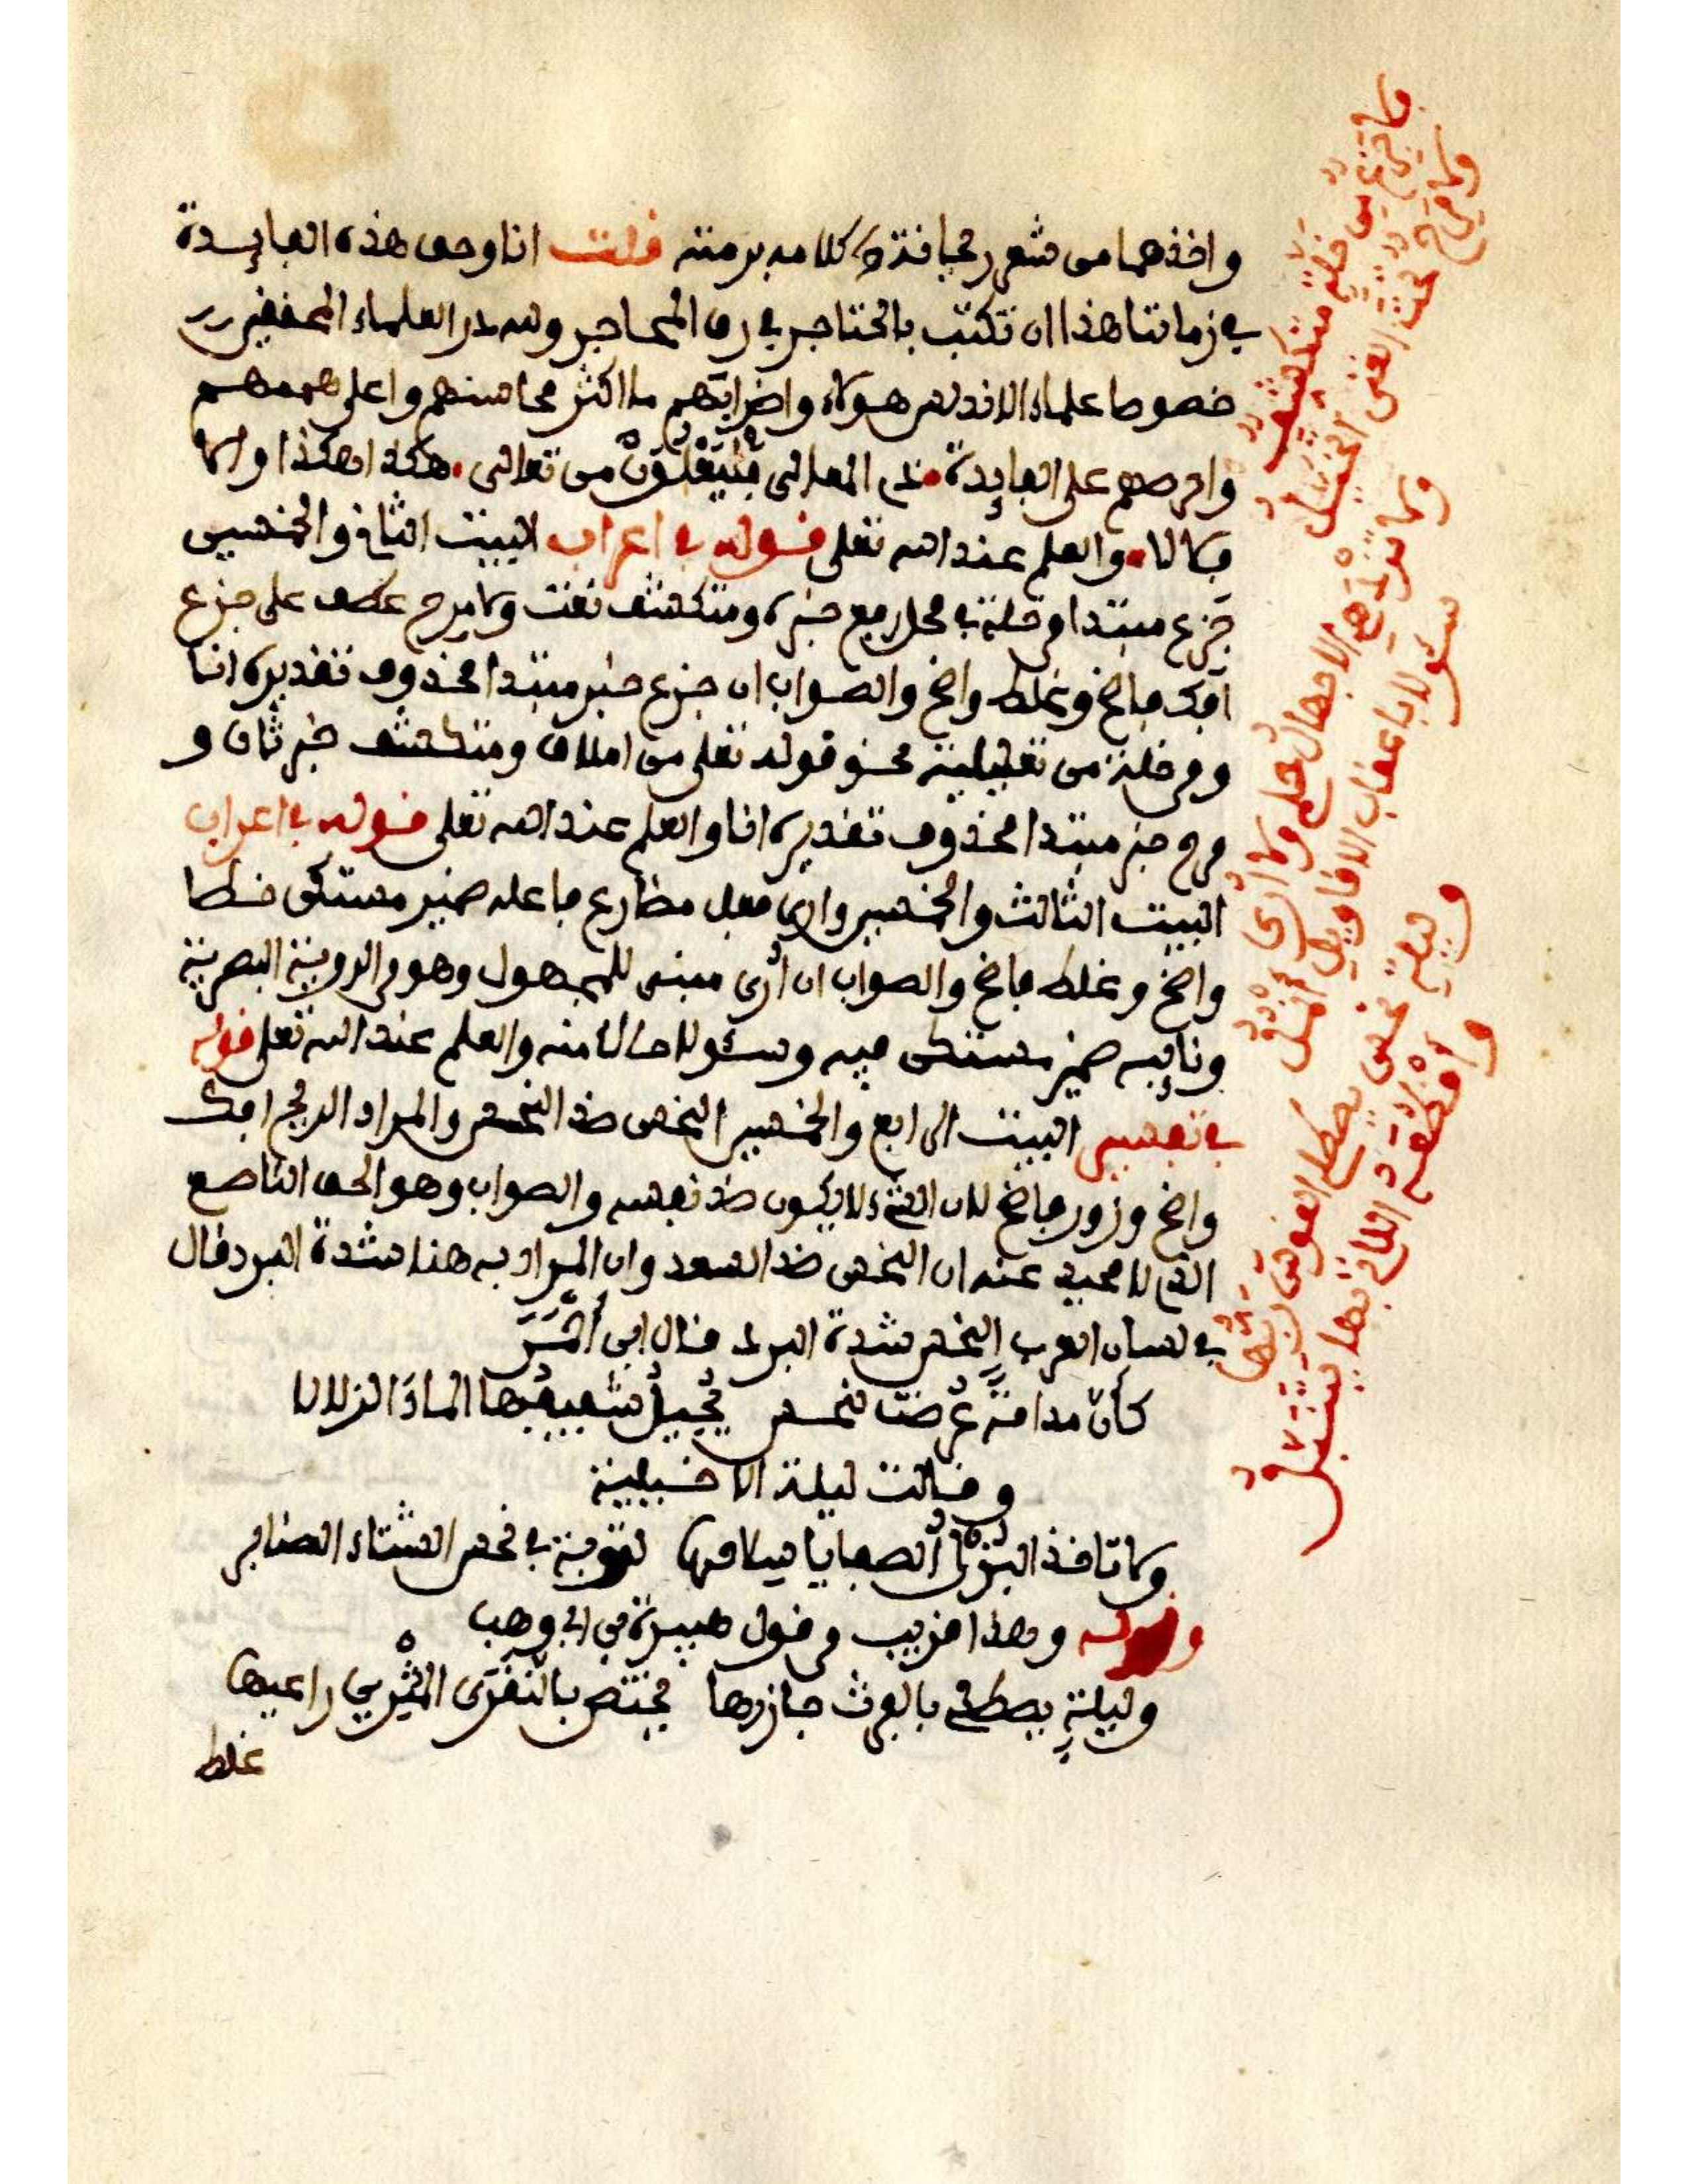 واخذهما من شعر رجبا فتذكر كلامه برمته قلت انا وحق هذه الفايدة
في زماننا هذا ان تكتب بالخناجر في رق المحاجر ولله در العلماء المحققين
خصوصا علماء الاندلس هولاء واضرابهم ما اكثر محاسنهم واعلى هممهم
واحرصهم على الفايدة ندي المعالي فليعلون من تعالى هكذا هكذا والا
فلا لا والعلم عند الله تعلى قوله في اعراب البيت الثاني والخمسين
جزع مبتدا وخلة في محل رفع خبره ومتكشف نعت ولا مرح عطف على جزع
افك فاضح وغلط واضح والصواب ان جزع خبر مبتدا محذوف تقديره انا
ومن خلة من تعليلية نحو قوله تعلى من املاق ومتكشف خبر ثان و
مرح خبر مبتدا محذوف تقديره انا والعلم عند الله تعلى قوله في اعراب
البيت الثالث والخمسين وارى فعل مضارع فاعله ضمير مستكن خطا
واضح وغلط فاضح والصواب ان أرى مبني للمجهول وهو من الروية البصرية
ونايبه ضمير مستكن فيه وسئولا حالا منه والعلم عند الله تعلى قوله
في تفسير البيت الرابع والخمسين النحس ضد النحس والمراد الريح افك
واضح وزور فاضح لان الشيء لا يكون ضد نفسه والصواب وهو الحق الناصع
الذي لا محيد عنه ان النحس ضد السعد وان المراد به هنا شدة البرد قال
في لسان العرب النحس شدة البرد قال ابن أحمر
كأن مدامة عرضت لنحس يحيل شفيفها الماء الزلالا
وقالت ليلة الاخيلية
ولا تاخذ الكوم الصفايا سلاحها لتوبة في نحس الشتاء الصنابر
وقوله وهذا قريب من قول هبيرة بن ابي وهب
وليلة يصطلي بالفرث جازرها يختص بالنقرى المثرين داعيها
غلط
فلا جزع من خلة متكشف
ولا مرح تحت الغنى أتخيل
ولا تزدهي الاجهال حلمي ولا أرى
سئولا باعقاب الاقاويل أنمل
وليلة نحس يصطلي القوس ربها
وأقطعه اللاتي بها يتنبل